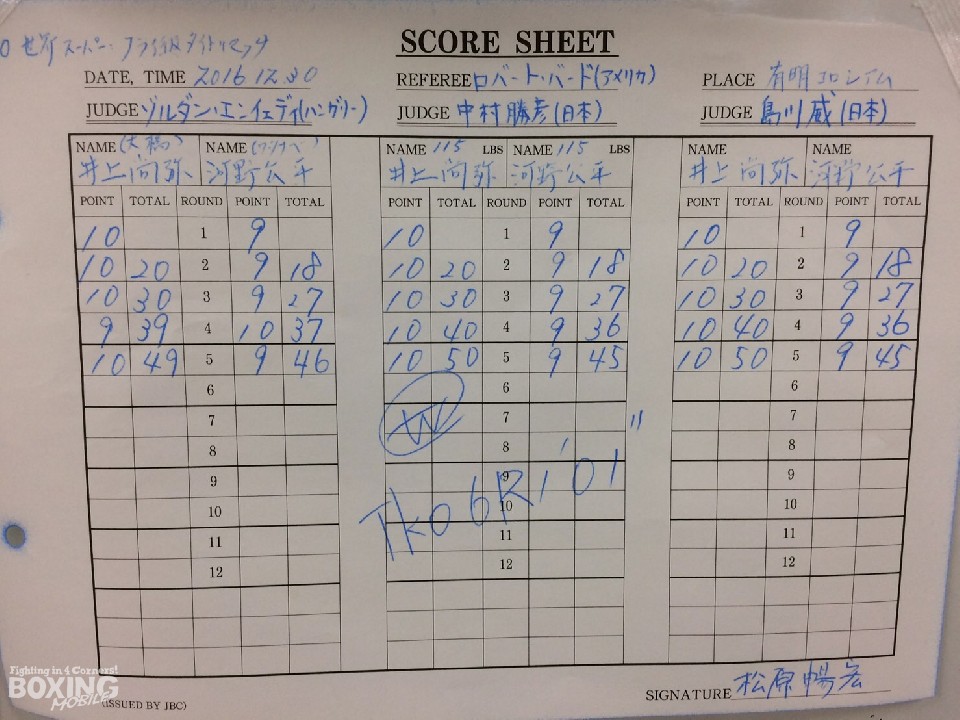 O 世界スーパー・フライ級タイトルマッチ
SCORE SHEET
DATE, TIME 2016 12.30 REFEREE ロバート・バード(アメリカ) PLACE 有明コロシアム
JUDGE ゾルタン・エンイェディ(ハンガリー) JUDGE 中村勝彦(日本) JUDGE 島川威(日本)
NAME (大橋) NAME (ワタナベ) NAME 115 LBS NAME 115 LBS NAME NAME
井上尚弥 河野公平 井上尚弥 河野公平 井上尚弥 河野公平
POINT TOTAL ROUND POINT TOTAL POINT TOTAL ROUND POINT TOTAL POINT TOTAL ROUND POINT TOTAL
10 1 9 10 1 9 10 1 9
10 20 2 9 18 10 20 2 9 18 10 20 2 9 18
10 30 3 9 27 10 30 3 9 27 10 30 3 9 27
9 39 4 10 37 10 40 4 9 36 10 40 4 9 36
10 49 5 9 46 10 50 5 9 45 10 50 5 9 45
6 6 6
W
7 7 7
8 8 8
9 9 9
TKO 6R 1'01"
10 10 10
11 11 11
12 12 12
SIGNATURE 松原暢宏
(ISSUED BY JBC)
Fighting in 4 Corners!
BOXING
MOBILE